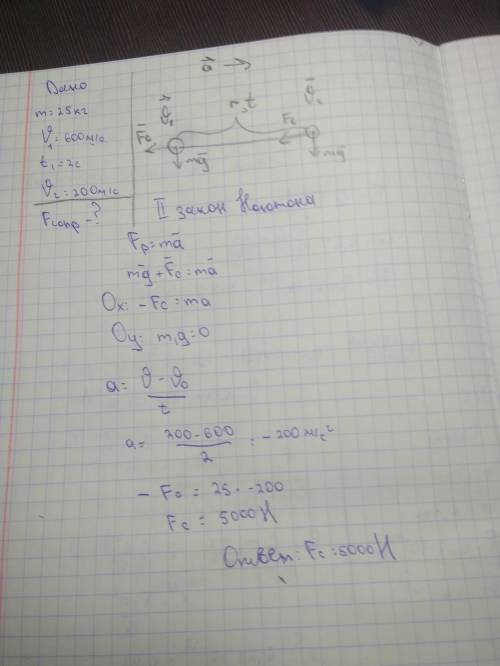 Дано
m = 25 кг
V₁ = 600 м/с
t₁ = 2с
V₂ = 200 м/с
Fсопр - ?
a⃗ →
V⃗₁
V̄₂
F̄c
Fc
mḡ
mḡ
II закон Ньютона
Fр = mā
mḡ + F̄c = mā
Ox: - Fc = ma
Oy: m₁g = 0
a = V - V₀ / t
a = 200 - 600 / 2 = - 200 м/с²
- Fc = 25 · -200
Fc = 5000 Н
Ответ: Fc = 5000 Н